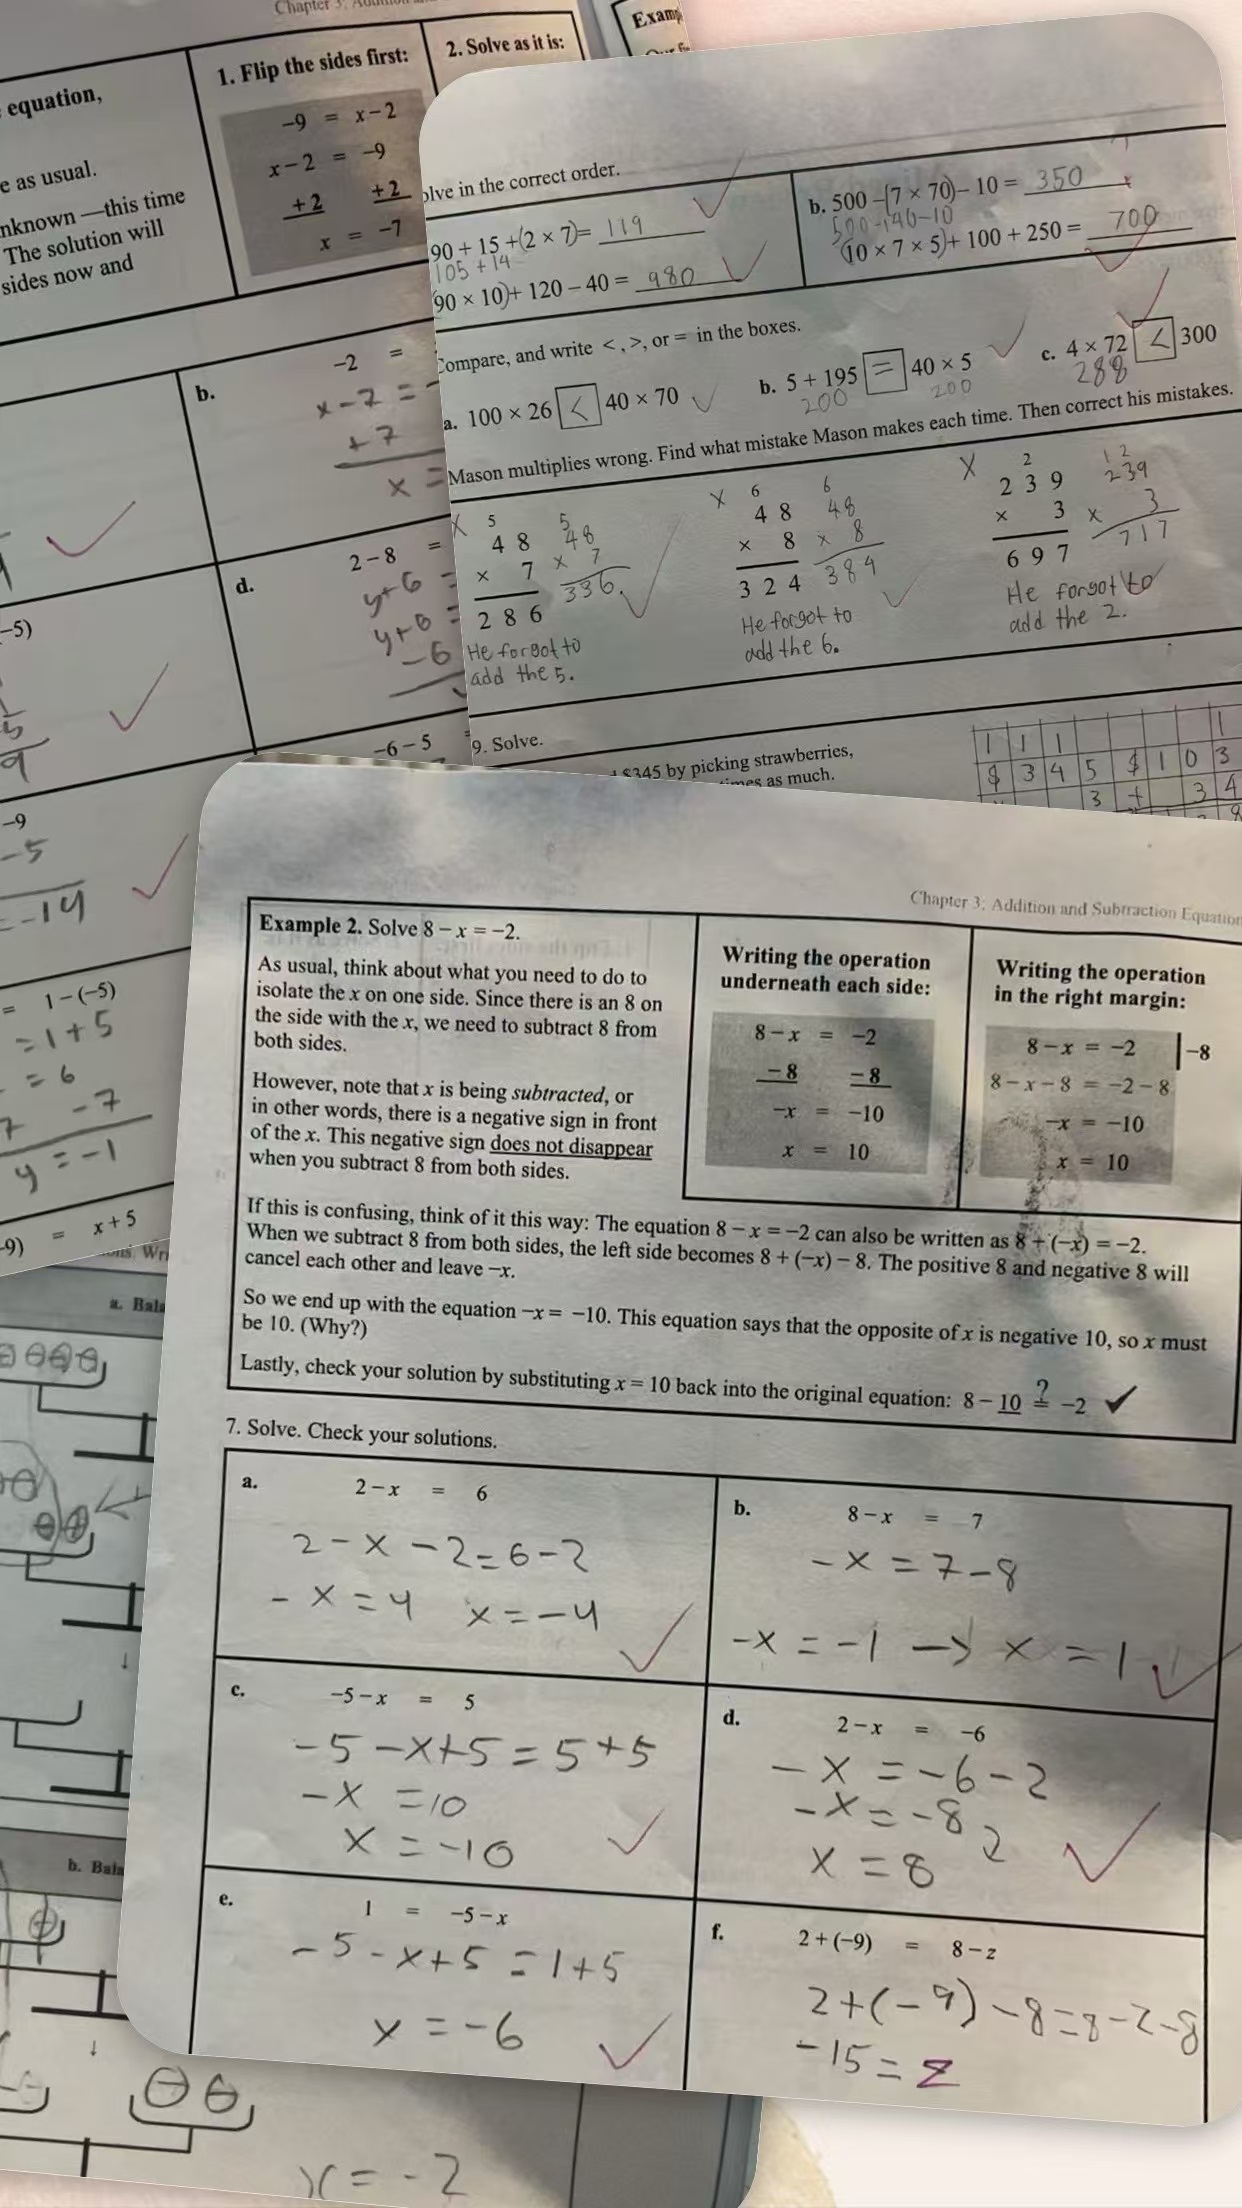 Chapter 3:
equation,
e as usual.
nknown —this time
The solution will
sides now and
1. Flip the sides first:
-9 = x-2
x-2 = -9
+2 +2
x = -7
2. Solve as it is:
b. -2 =
x-7 =
+7
x =
d. 2-8 =
y+6 =
y+6 =
-6
-6-5
-5)
9
-9
-5
=-14
= 1-(-5)
=1+5
= 6
7 -7
y=-1
-9) = x+5
olve in the correct order.
90 + 15 +(2 × 7)= 119
105 + 14
90 × 10)+ 120 – 40 = 980
b. 500 –(7 × 70)– 10 = 350
500-140-10
(10 × 7 × 5)+ 100 + 250 = 700
Compare, and write <, >, or = in the boxes.
a. 100 × 26 < 40 × 70
b. 5 + 195 = 40 × 5
200 200
c. 4 × 72 < 300
288
Mason multiplies wrong. Find what mistake Mason makes each time. Then correct his mistakes.
X 5 5
48 48
× 7 × 7
286 336.
He forgot to
add the 5.
X 6 6
48 48
× 8 × 8
324 384
He forgot to
add the 6.
X 2 12
239 239
× 3 × 3
697 717
He forgot to
add the 2.
9. Solve.
$345 by picking strawberries,
times as much.
1 1 1 1
$ 3 4 5 $ 1 0 3
3 + 3 4
Chapter 3: Addition and Subtraction Equation
Example 2. Solve 8 – x = –2.
As usual, think about what you need to do to
isolate the x on one side. Since there is an 8 on
the side with the x, we need to subtract 8 from
both sides.
However, note that x is being subtracted, or
in other words, there is a negative sign in front
of the x. This negative sign does not disappear
when you subtract 8 from both sides.
Writing the operation
underneath each side:
8-x = -2
-8 -8
-x = -10
x = 10
Writing the operation
in the right margin:
8-x = -2 |-8
8-x-8 = -2-8
-x = -10
x = 10
If this is confusing, think of it this way: The equation 8 – x = –2 can also be written as 8 + (–x) = –2.
When we subtract 8 from both sides, the left side becomes 8 + (–x) – 8. The positive 8 and negative 8 will
cancel each other and leave –x.
So we end up with the equation –x = –10. This equation says that the opposite of x is negative 10, so x must
be 10. (Why?)
Lastly, check your solution by substituting x = 10 back into the original equation: 8 – 10 ≟ –2 ✔
7. Solve. Check your solutions.
a. 2-x = 6
2-x-2=6-2
-x=4 x=-4
b. 8-x = 7
-x=7-8
-x=-1 → x=1
c. -5-x = 5
-5-x+5=5+5
-x=10
x=-10
d. 2-x = -6
-x=-6-2
-x=-8
x=8
e. 1 = -5-x
-5-x+5=1+5
x=-6
f. 2+(-9) = 8-z
2+(-9)-8=8-z-8
-15=z
a. Bala
b. Bala
x=-2